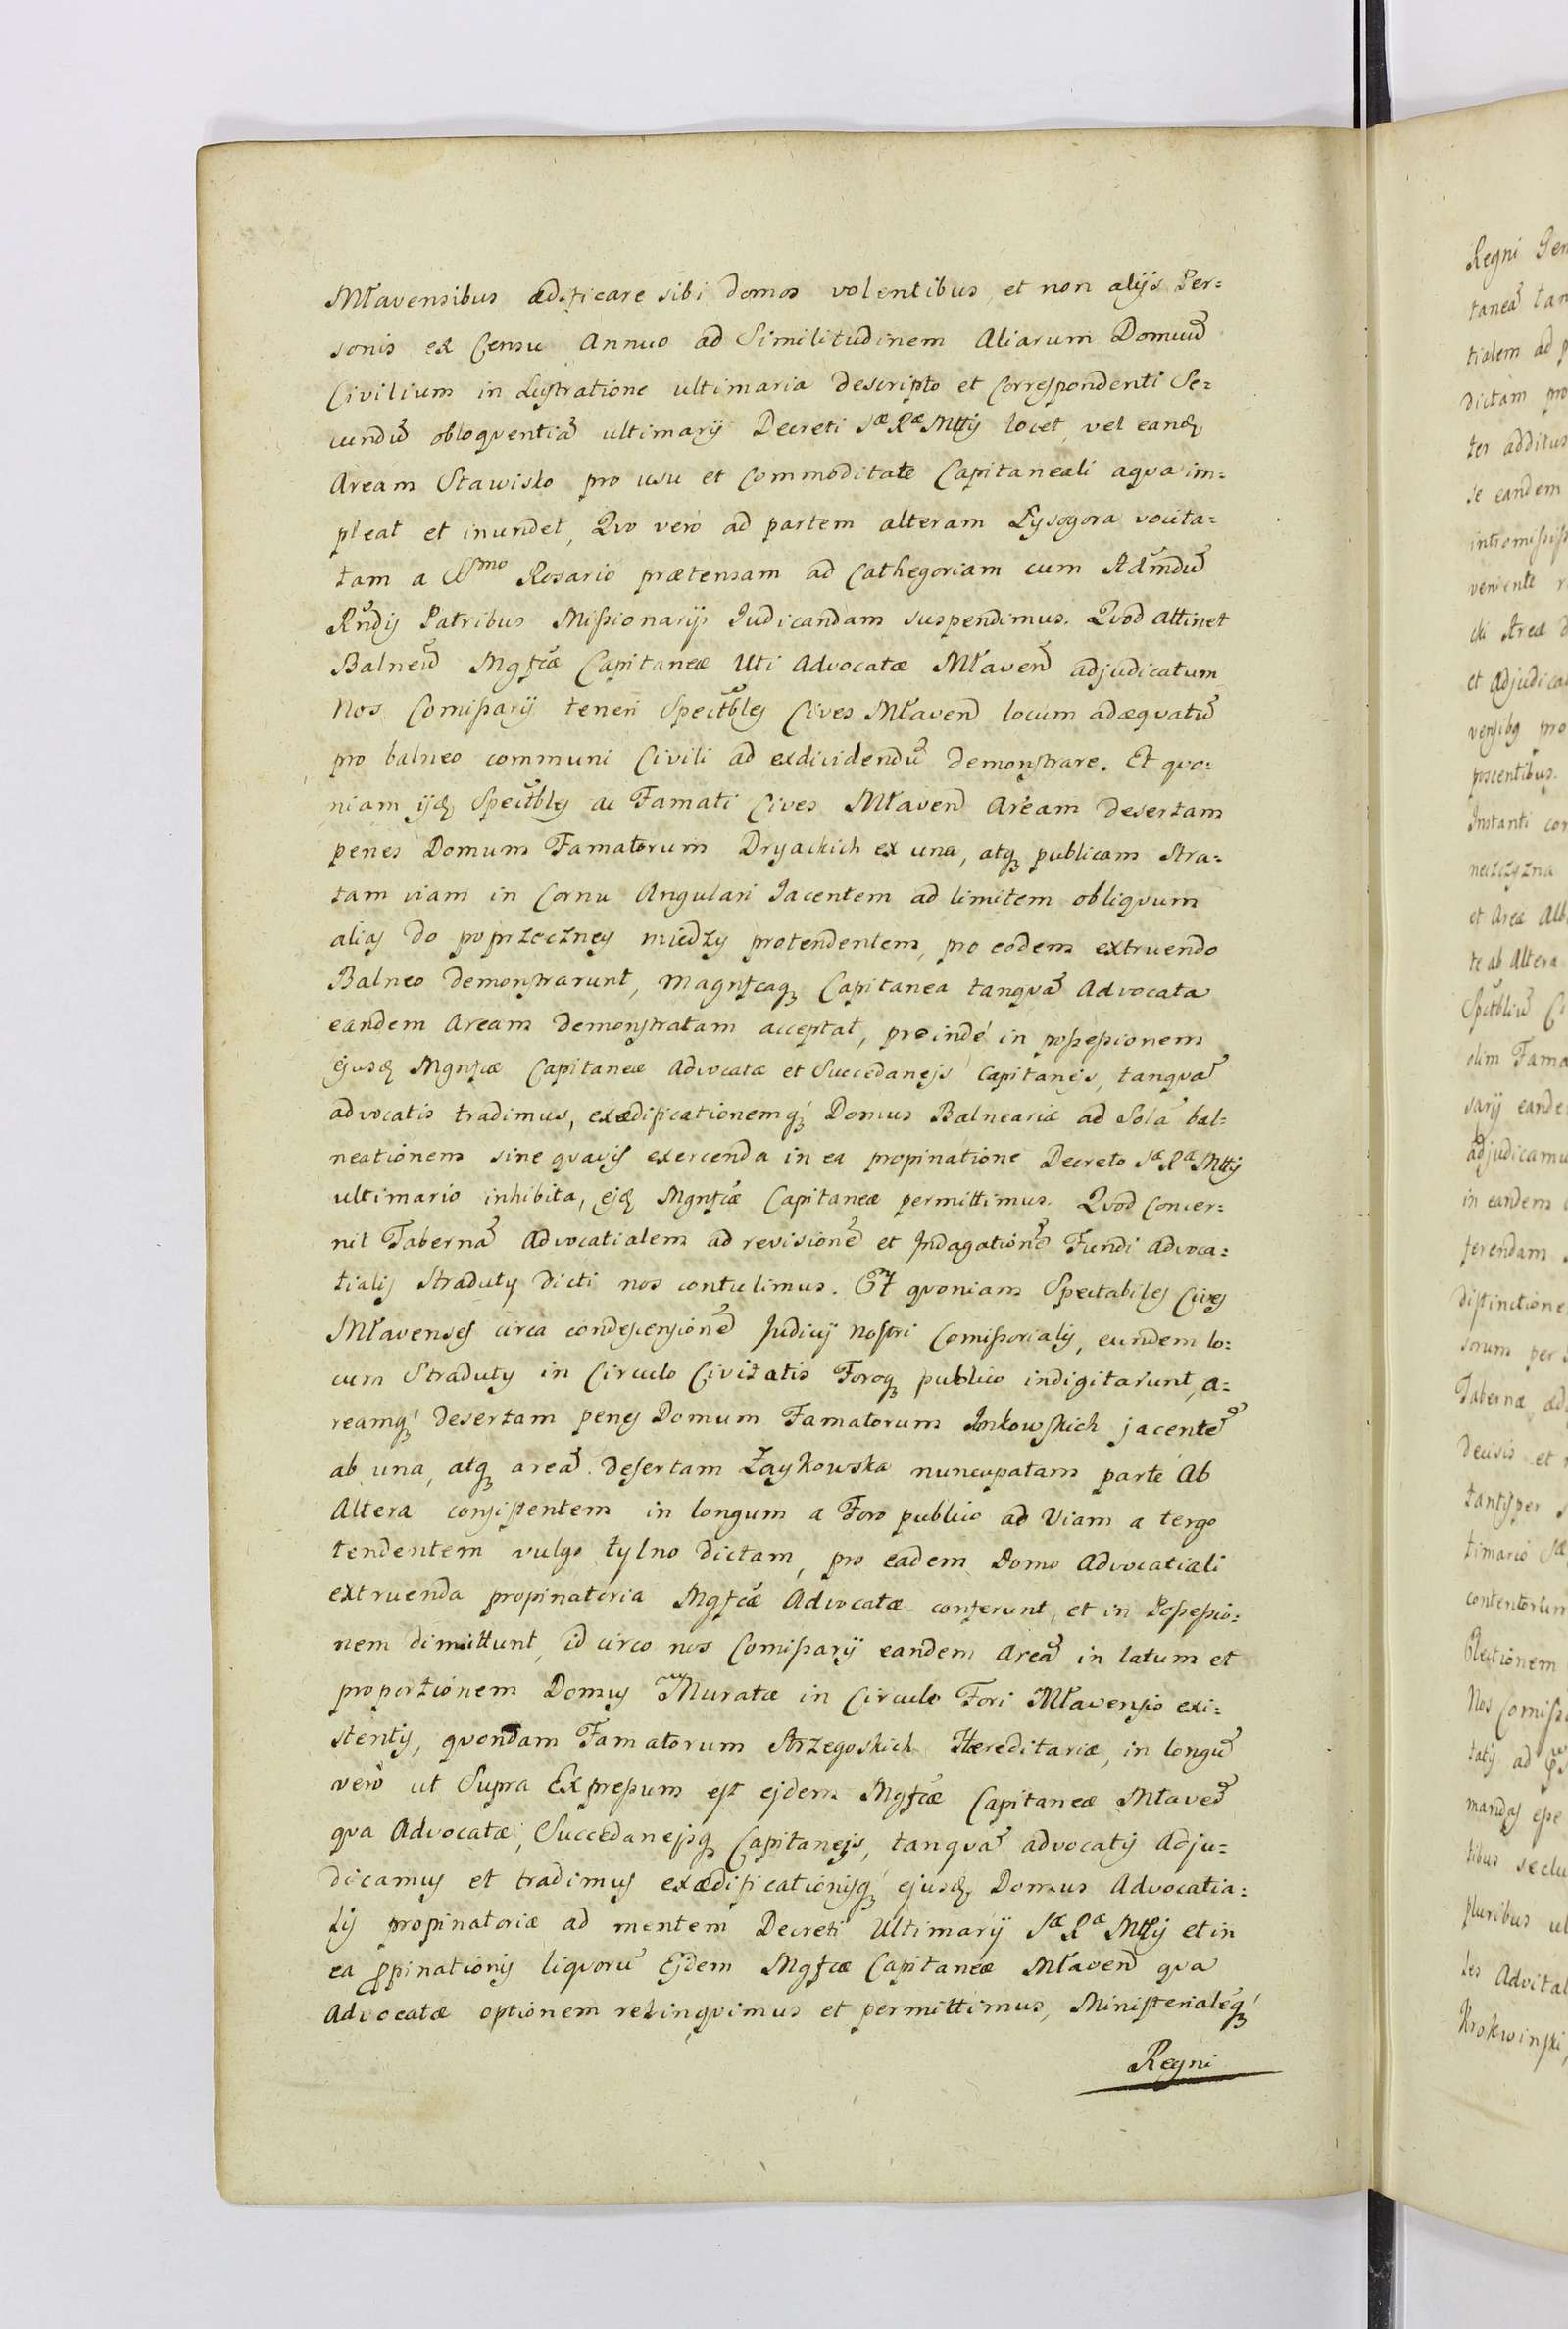 Mławensibus ædificare sibi domos volentibus, et non alijs Per=
sonis ex Censu Annuo ad Similitudinem Aliarum Domuū
Civilium in Lustratione ultimaria descripto et Correspondenti Se=
cundū obloqventiā ultimarij Decreti Sæ Ræ Mttij locet, vel eandę
Aream Stawisko pro usu et Commoditate Capitaneali aqva im=
pleat et inundet, Qvo vero ad partem alteram Łysogora vocita=
tam a SSmo Rosario prætensam ad Cathegoriam cum Admdū
Rndis Patribus Missionarijs Iudicandam suspendimus. Qvod attinet
Balneū Mgfcæ Capitaneæ Uti Advocatæ Mławen̄ adjudicatum
Nos Comissarij teneri Spectbles Cives Mławen̄ locum adæqvatū
pro balneo communi Civili ad exdividendū demonstrare. Et qvo=
niam ijdę Spectbles ac Famati Cives Mławen̄ Aream desertam
penes Domum Famatorum Dryackich ex una, atq publicam stra=
tam viam in Cornu Angulari Iacentem ad limitem obliqvum
alias do poprzeczney miedzy protendentem, pro eodem extruendo
Balneo demonstrarunt, Magnificaq Capitanea tanqvā Advocata
eandem Aream demonstratam acceptat, proindé in possessionem
ejusdę Mgnfcæ Capitaneæ Advocatæ et Succedanejs Capitanejs, tanqvā
advocatis tradimus, exædificationemq Domus Balneariæ ad Solā bal=
neationem sine qvavis exercenda in ea propinatione Decreto Sæ Ræ Mttij
ultimario inhibita, ejdę Mgnfcæ Capitaneæ permittimus. Qvod Concer=
nit Tabernā Advocatialem ad revisionē et Indagationē Fundi Advoca=
tialis Straduty dicti nos contulimus. Et qvoniam Spectabiles Cives
Mławenses circa condescensionē Judicij nostri Comissorialis, eundem lo=
cum Straduty in Circulo Civitatis Foroq publico indigitarunt, a=
reamq desertam penes Domum Famatorum Inkowskich jacentē
ab una, atq areā desertam Zaykowska nuncupatam parte ab
Altera consistentem in longum a Foro publico ad Viam a tergo
tendentem vulgo tylno dictam, pro eadem Domo Advocatiali
extruenda propinatoria Mgfcæ Advocatæ conferunt, et in Possessio=
nem dimittunt, id circo nos Comissarij eandem Areā in latum et
proportionem Domus Muratæ in Circulo Fori Mławensis exi=
stentis, qvondam Famatorum Strzegoskich Hereditariæ, in longū
vero ut Supra Expressum est ejdem Mgfcæ Capitaneæ Mławen̄
qva Advocatæ, Succedanejsq Capitanejs, tanqvā advocatis Adju=
dicamus et tradimus exædificationisq ejusdę Domus Advocatia=
lis propinatoriæ ad mentem Decreti Ultimarij Sæ Ræ Mttij et in
ea ꝓpinationis liqvorū Ejdem Mgfcæ Capitaneæ Mławen̄ qva
Advocatæ optionem relinqvimus et permittimus, Ministerialéq
Regni